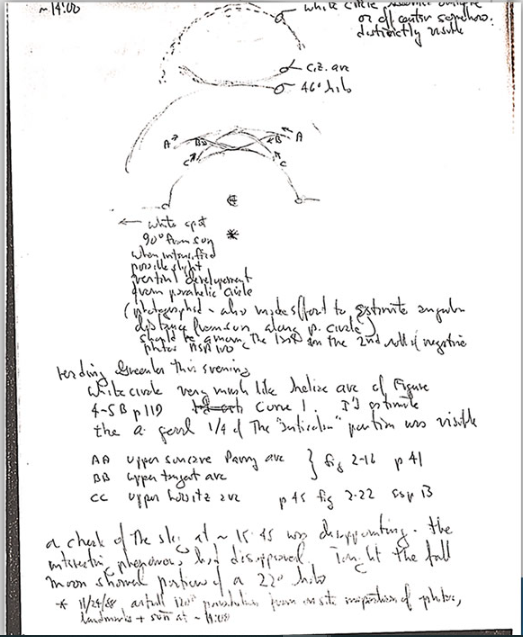 ~ 14:00
white circle
or off center somehow.
distinctly visible
c.z. arc
46° halo
A A
B B
C C
← white spot
90° from sun
when intensified
possible slight
vertical development
from parhelic circle
(photographed - also made effort to estimate angular
distance from sun along p. circle)
should be among the last on the 2nd roll of negative
photos
reading Greenler this evening
White circle very much like heliac arc of Figure
4-5B p 119 Curve 1. I'd estimate
the a good 1/4 of the "anthelion" portion was visible
AA upper suncave Parry arc } fig 2-16 p 41
BB upper tangent arc
CC upper Lowitz arc p 45 fig 2-22 13
a check of the sky at ~ 15:45 was disappointing. the
interesting phenomena had disappeared. Tonight the full
moon showed portion of a 22° halo
* 11/24/88 120° parhelion from on site inspection of photos,
landmarks + sun at ~ 14:00